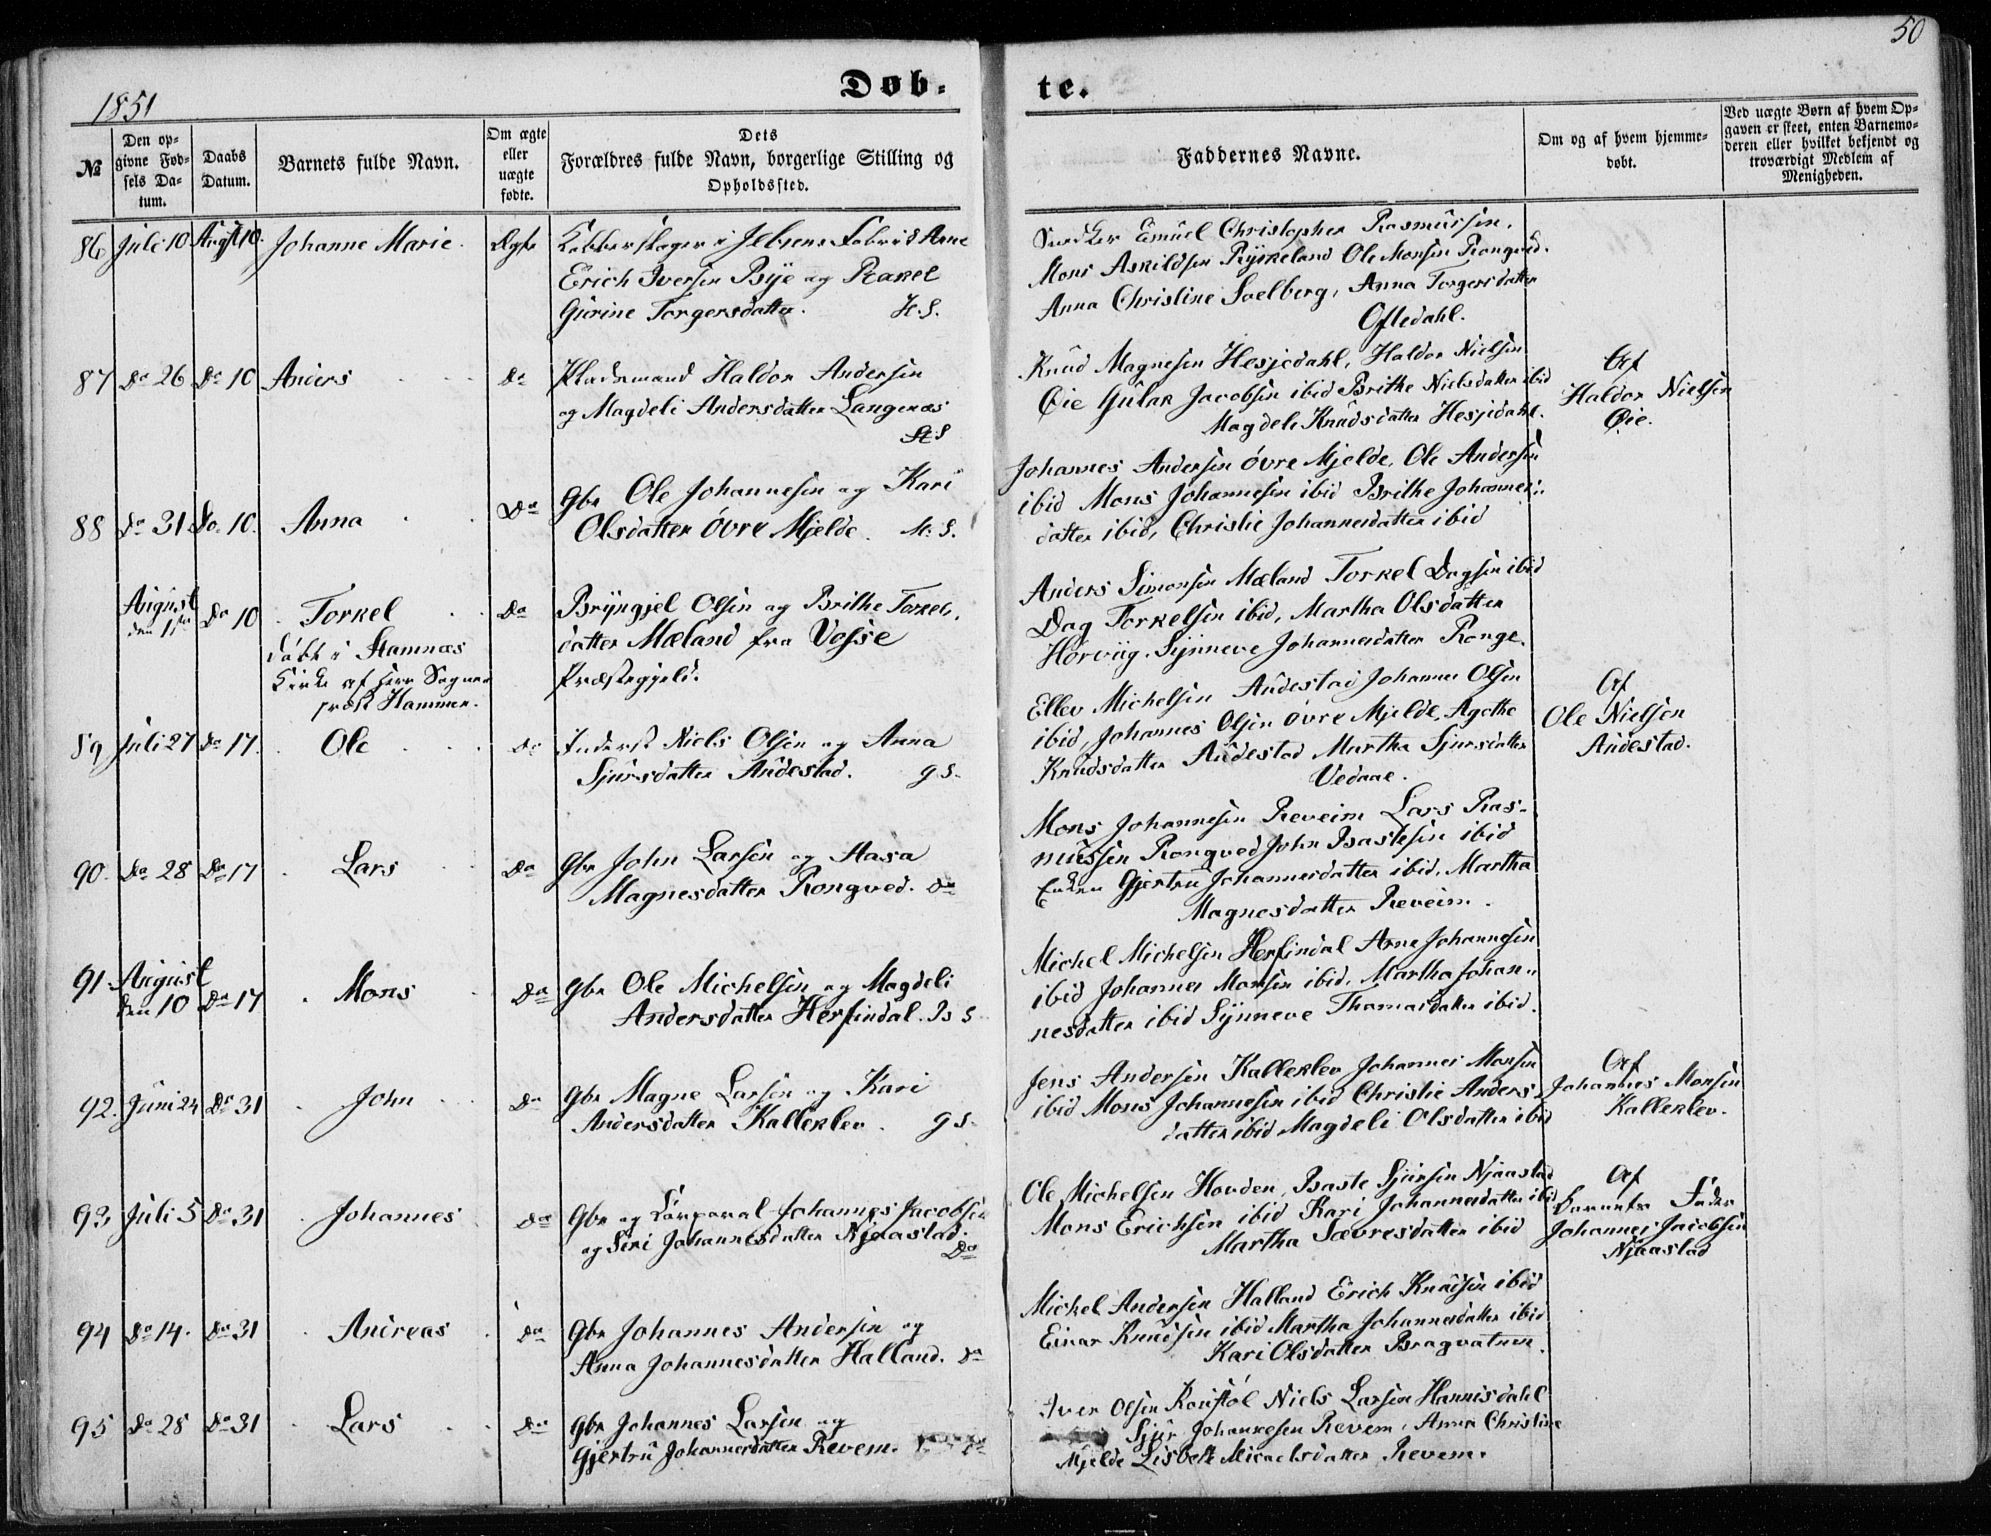 50
1851
Døb-
te.
№
Den op-
givne Fød-
sels Da-
tum.
Daabs
Datum.
Barnets fulde Navn.
Om ægte
eller
uægte
fødte.
Dets
Forældres fulde Navn, borgerlige Stilling og
Opholdssted.
Faddernes Navne.
Om og af hvem hjemme-
døbt.
Ved uægte Børn af hvem Op-
gaven er skeet, enten Barnemo-
deren eller hvilket bekjendt og
troværdigt Medlem af
Menigheden.
86 Juli 10 Augst 10. Johanne Marie. Ægte Kobberslager i Jebsens Fabrik Arne
Erich Iversen Bye og Rakel
Gurine Torgersdatter. H.S.
Snedker Emuel Christopher Rasmussen,
Mons Askildsen Rykeland Ole Monsen Rongved.
Anna Christine Soelberg, Anna Torgersdatter
Oftedahl.
87 Do 26 Do 10 Anders Do Pladsmand Haldor Andersen
og Magdeli Andersdatter Langenæs
St S
Knud Magnesen Hesjedahl, Haldor Nielsen
Øie Gulak Jacobsen ibid Brithe Nielsdatter ibid
Magdeli Knudsdatter Hesjedahl.
Af
Haldor Nielsen
Øie.
88 Do 31 Do. 10. Anna Do Gbr Ole Johannesen og Kari
Olsdatter Øvre Mjelde. H. S.
Johannes Andersen øvre Mjelde, Ole Andersen
ibid Mons Johannesen ibid Brithe Johannes-
datter ibid, Christie Johannesdatter ibid
August
den 1ste Do 10 Torkel Do Bryngjel Olsen og Brithe Torkels-
datter Mæland fra Vosse
Præstegjeld.
døbt i Stamnæs
Kirke af Herr Sogne-
præst Hammer.
Anders Simonsen Mæland Torkel Dagsen ibid
Dag Torkelsen ibid, Martha Olsdatter
Horviig. Synneve Johannesdatter Ronge.
89 Juli 27 Do 17. Ole Do Inderst Niels Olsen og Anna
Sjursdatter Audestad. G S.
Ellev Michelsen Audestad Johannes Olsen
ibid, Johannes Olsen øvre Mjelde, Agethe
Knudsdatter Audestad Martha Sjursdatter
Vedaae.
Af
Ole Nielsen
Audestad.
90. Do 28 Do 17 Lars Do Gbr John Larsen og Aasa
Magnesdatter Rongved. Do
Mons Johannesen Reveim Lars Ras-
mussen Rongved John Baastesen ibid
Enken Gjertru Johannesdatter ibid. Martha
Magnesdatter Reveim.
91. August
den 10 Do 17 Mons Do Gbr Ole Michelsen og Magdeli
Andersdatter Herfindal. Bs S
Michel Michelsen Herfindal Arne Johannesen
ibid Johannes Monsen ibid. Martha Johan-
nesdatter ibid Synneve Thomasdatter ibid.
92. Juni 24 Do 31 John Do Gbr Magne Larsen og Kari
Andersdatter Kallerlev. G S.
Jens Andersen Kallerlev Johannes Monsen
ibid Mons Johannesen ibid Christie Anders-
datter ibid Magdeli Olsdatter ibid
Af
Johannes Monsen
Kallerlev.
93 Juli 5 Do 31 Johannes Do Gbr og Corporal Johannes Jacobsen
og Siri Johannesdatter Njaastad.
Do
Ole Michelsen Houden, Baste Sjursen Njaastad
Mons Erichsen ibid Kari Johannesdatter ibid
Martha Sævresdatter ibid
Af
Barnets Fader
Johannes Jacobsen
Njaastad
94 Do 14. Do 31 Andreas Do Gbr Johannes Andersen og
Anna Johannesdatter Halland. Do
Mickel Andersen Halland Erich Knudsen ibid
Einar Knudsen ibid Martha Johannesdatter ibid
Kari Olsdatter Bragvatnen.
95 Do 28 Do 31 Lars Do Gbr Johannes Larsen og
Gjertru Johannesdatter Revem. Do
Iver Olsen Niels Larsen Hannisdahl
Sjur Johannesen Revem, Anna Christine
Mjelde Lisbeth Micaelsdatter Revem.